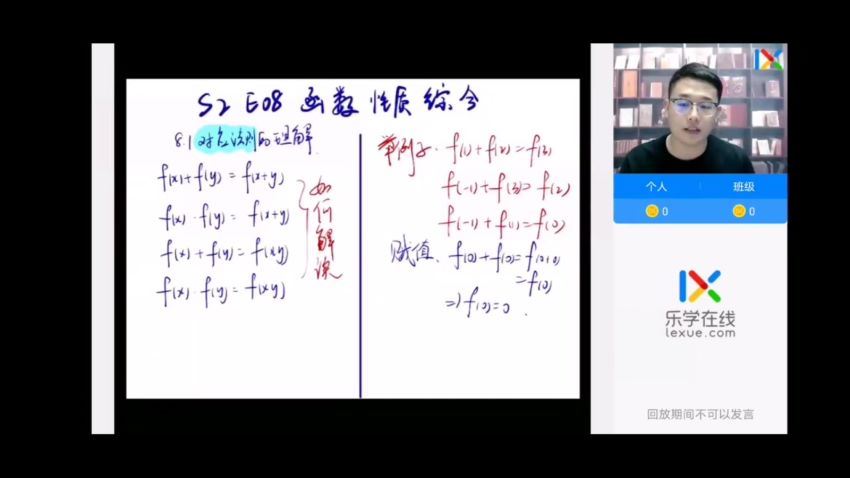 S2 E08 函数性质综合
8.1 对应法则的理解
f(x)+f(y)=f(x+y)
f(x)·f(y)=f(x+y)
f(x)+f(y)=f(xy)
f(x)·f(y)=f(xy)
如何解读
举例子. f(1)+f(2)=f(3)
f(-1)+f(3)=f(2)
f(-1)+f(1)=f(0)
赋值. f(0)+f(0)=f(0+0)
=f(0)
=>f(0)=0.
个人
班级
0
0
乐学在线
lexue.com
回放期间不可以发言